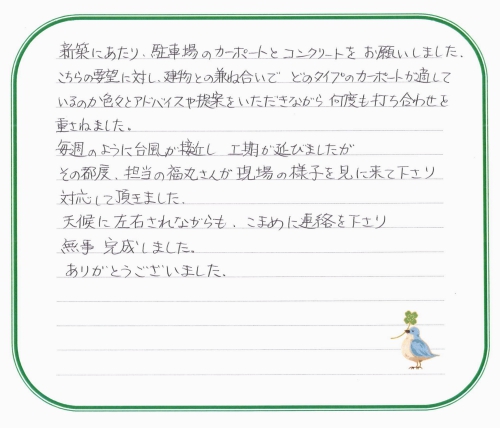 新築にあたり、駐車場のカーポートとコンクリートを お願いしました.
こちらの要望に対し、建物との兼ね合いで どのタイプのカーポートが適して
いるのか色々とアドバイスや提案をいただきながら 何度も打ち合わせを
重さねました。
毎週のように台風が接近し 工期が延びましたが
その都度、担当の福丸さんが 現場の様子を見に来て下さり
対応して頂きました.
天候に左右されながらも、こまめに連絡を下さり
無事 完成しました。
ありがとうございました.